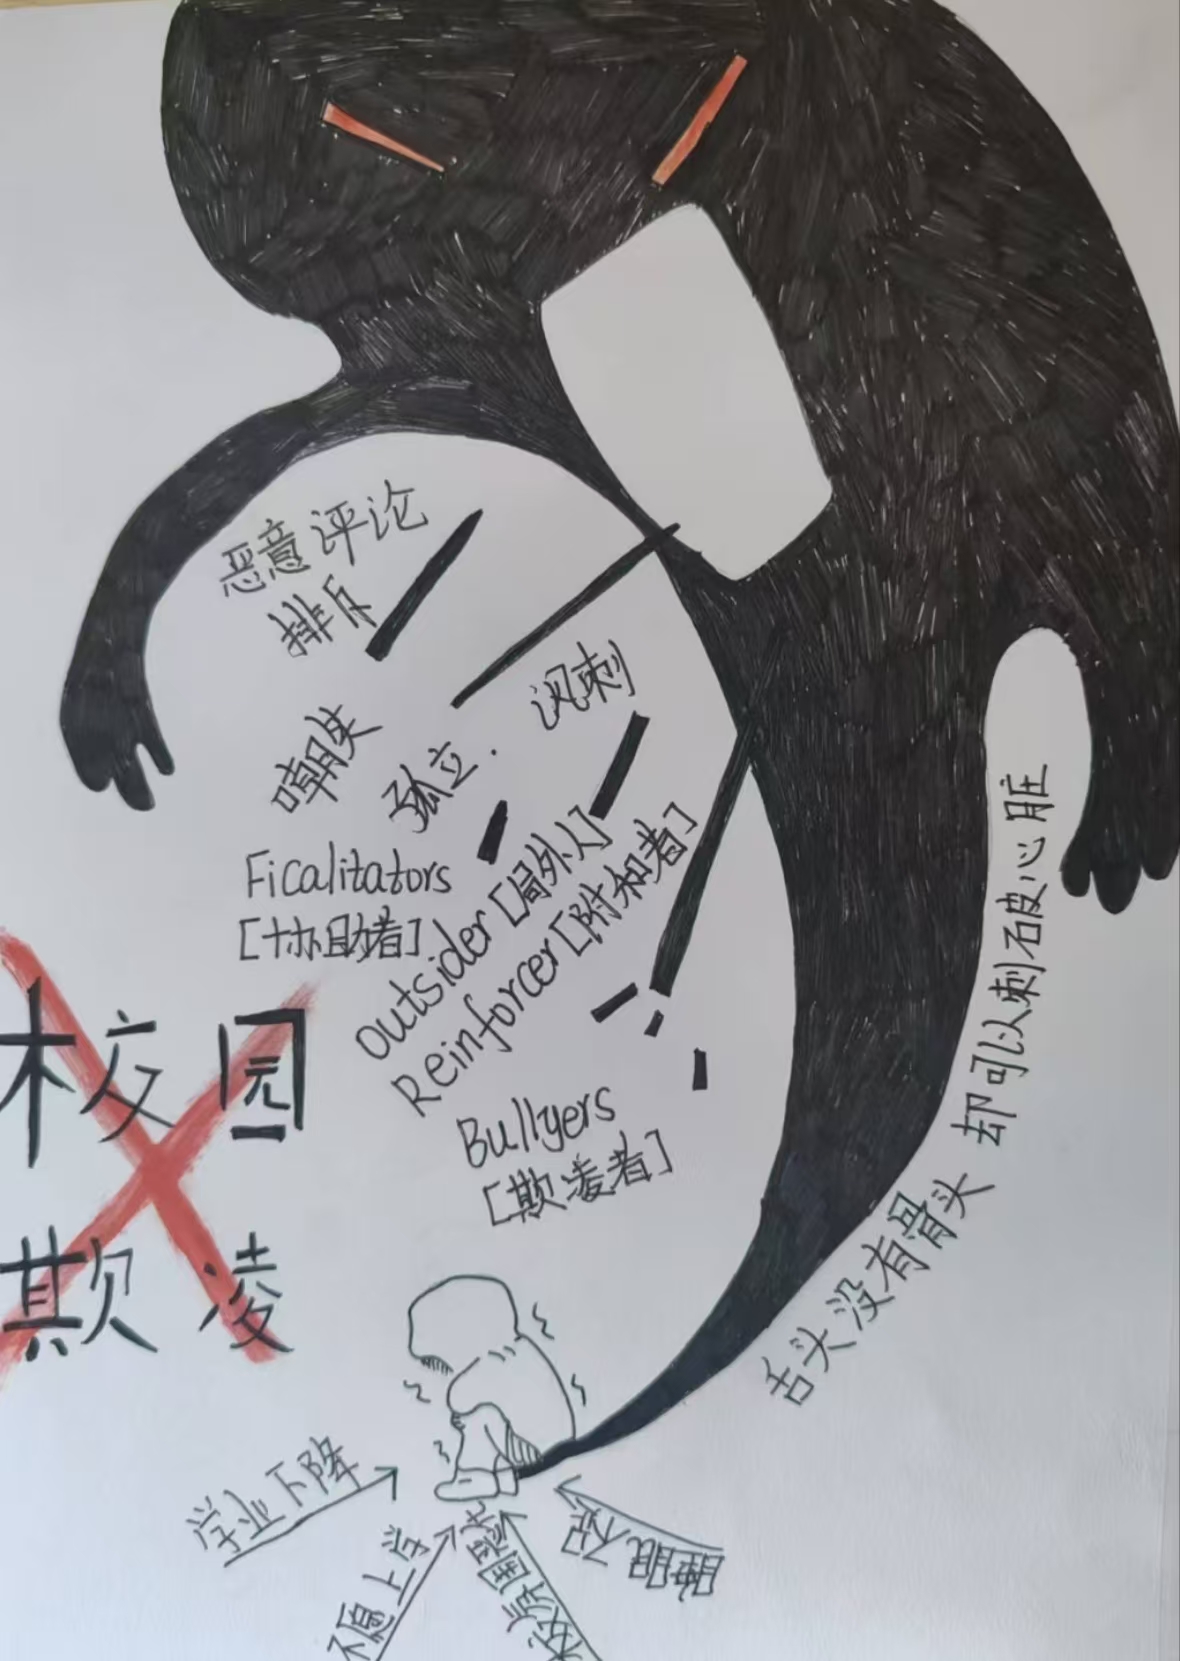 恶意评论
排斥
讽刺
嘲笑
孤立.
Ficalitators
[协助者]
outsider[局外人]
Reinforcer[附和者]
Bullyers
[欺凌者]
校园
欺凌
舌头没有骨头 却可以刺破心脏
学业下降
不愿上学
睡眠不足